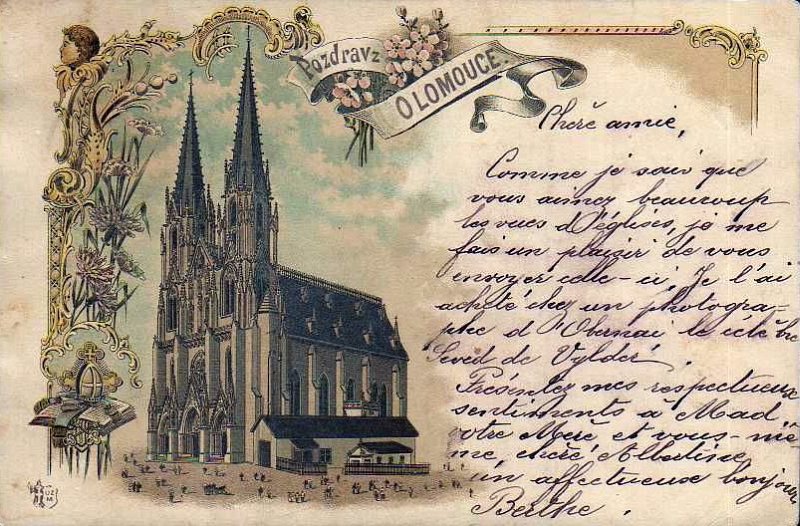 Pozdrav z
OLOMOUCE.
Cherè amie,
Comme je sais que
vous aimez beaucoup
les vues d'églises, je me
fais un plaisir de vous
envoyer celle-ci. Je l'ai
acheté chez un photogra-
phe d'Obernai le célèbre
de Vylder.
Présentez mes respectueux
sentiments à Mad
votre Merè et vous-mê
me, cherè Albertine,
un affectueux bonjour
Berthe.